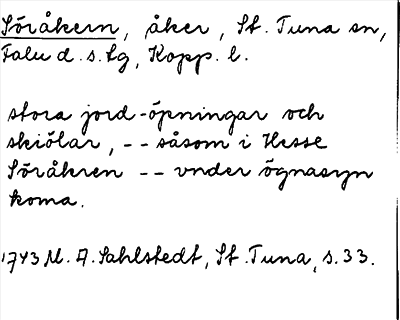 Söråkern, åker, St. Tuna sn,
Falu d.s.lg, Kopp. l.
stora jord-öpningar och
skiölar, -- såsom i Hesse
Söråkren -- vnder ögnasyn
koma.
1743 M. A. Sahlstedt, St. Tuna, s. 33.